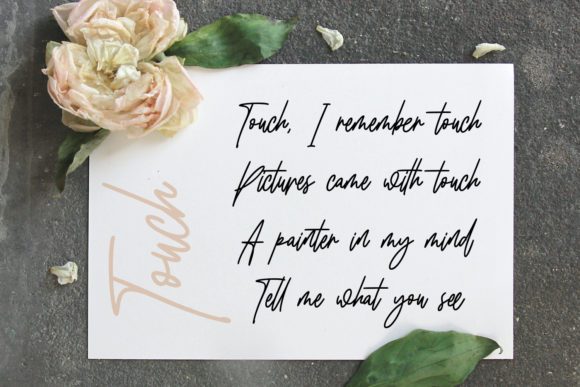 Touch
Touch, I remember touch
Pictures came with touch
A painter in my mind
Tell me what you see